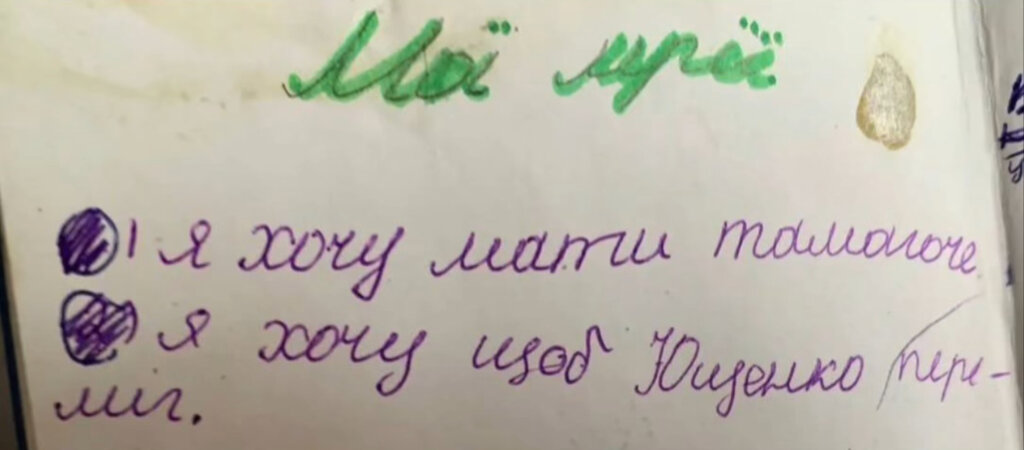 Мої мрії
1 я хочу мати тамагоче
я хочу щоб Ющенко пере-
міг.